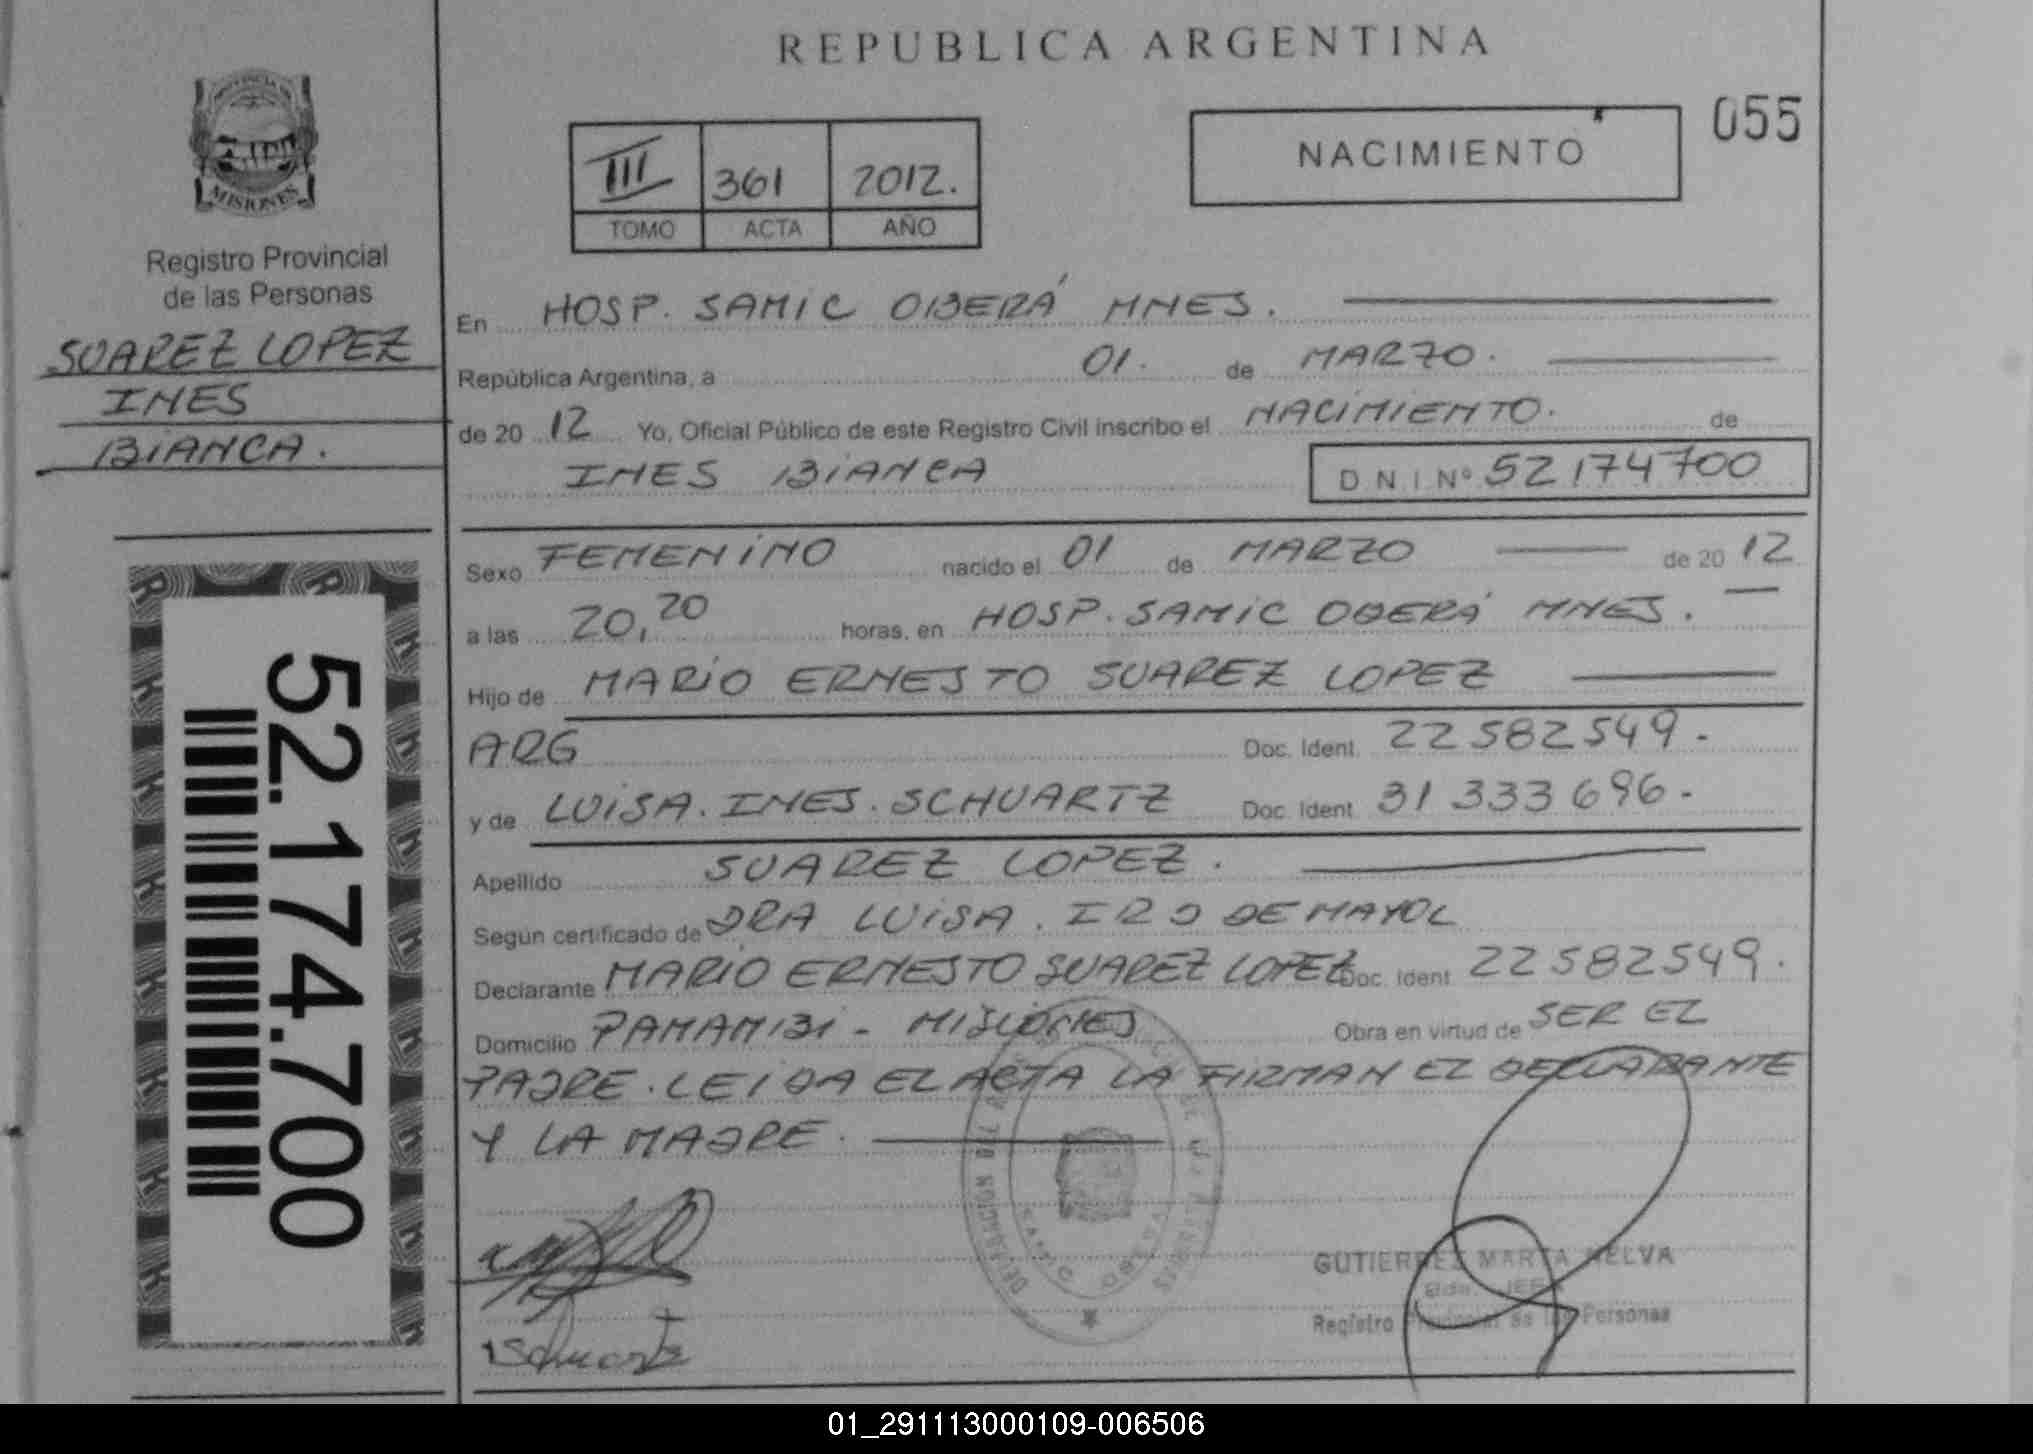 REPUBLICA ARGENTINA
055
NACIMIENTO
III 361 2012.
TOMO ACTA AÑO
MISIONES
Registro Provincial
de las Personas
SUAREZ LOPEZ
INES
BIANCA.
52.174.700
En HOSP. SAMIC OBERÁ MNES.
República Argentina, a 01. de MARZO.
de 20 12 Yo, Oficial Público de este Registro Civil inscribo el NACIMIENTO. de
INES BIANCA D N I Nº 52174700
Sexo FEMENINO nacido el 01 de MARZO de 20 12
a las 20,20 horas, en HOSP. SAMIC OBERÁ MNES.
Hijo de MARIO ERNESTO SUAREZ LOPEZ
ARG Doc. Ident. 22582549.
y de LUISA. INES. SCHUARTZ Doc. Ident. 31333696.
Apellido SUAREZ LOPEZ.
Según certificado de DRA LUISA. DE MAYOL
Declarante MARIO ERNESTO SUAREZ LOPEZ Doc. Ident. 22582549.
Domicilio PANAMBI - MISIONES Obra en virtud de SER EL
PADRE. LEIDA EL ACTA LA FIRMAN EL DECLARANTE
Y LA MADRE.
GUTIERREZ MARTA NELVA
Registro Provincial de las Personas
01_291113000109-006506